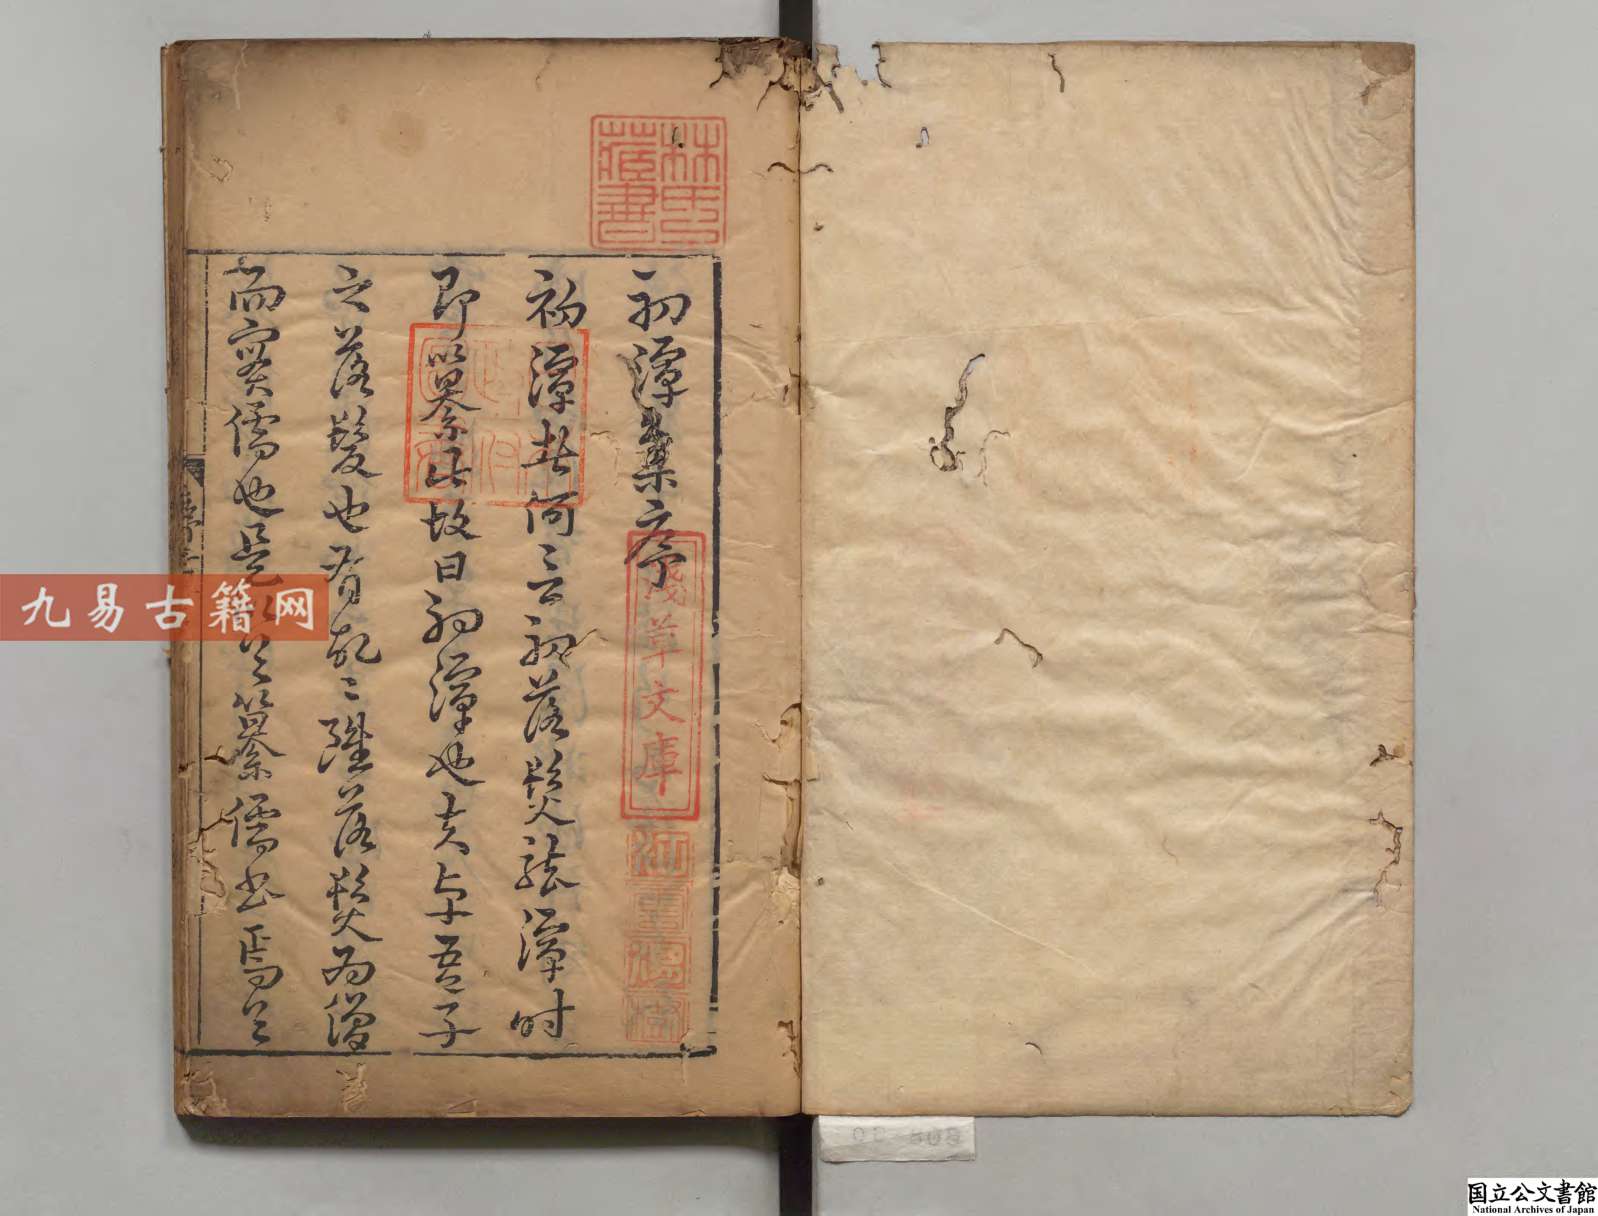 林氏藏書
初潭集序
淺草文庫
江雲渭樹
初潭者何言初落髮龍潭時
日本政府圖書
即纂此故曰初潭也夫卓吾子
之落髮也有故〻雖落髮為僧
而實儒也是以首纂儒書焉首
九易古籍网
国立公文書館
National Archives of Japan